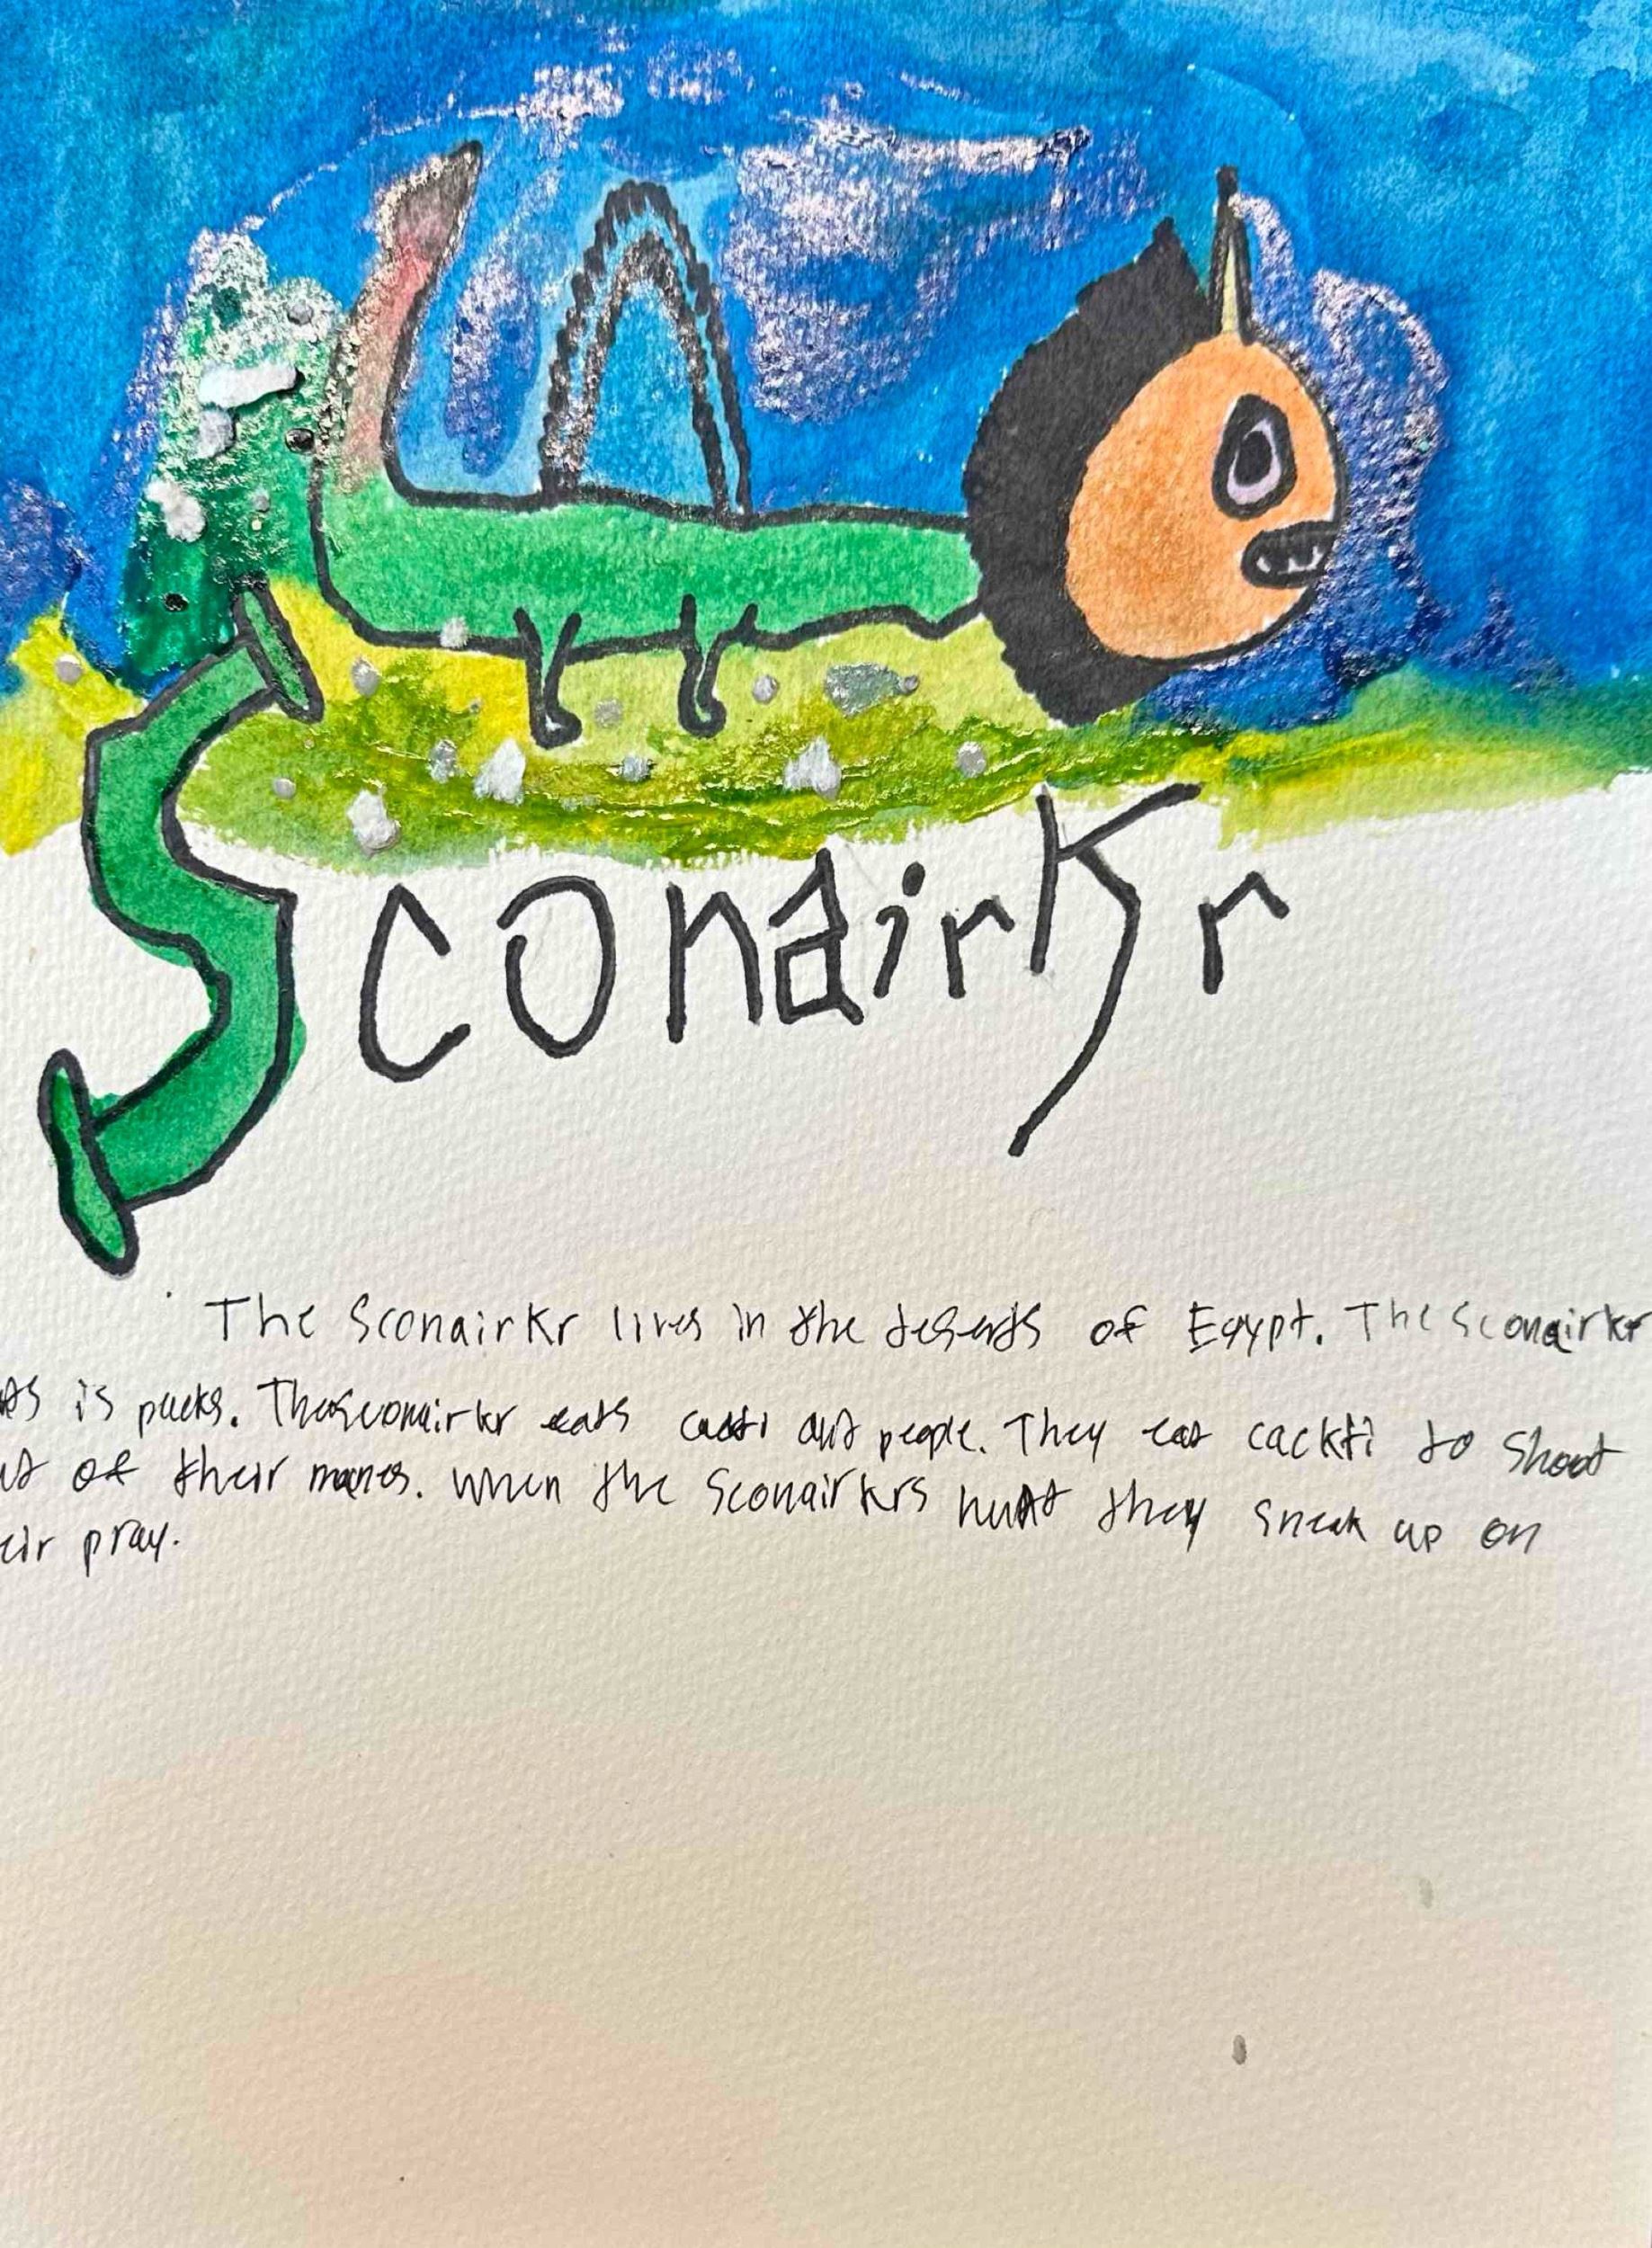 SconairKr
The Sconairkr lives in the deserts of Egypt. The Sconairkr
is packs. The Sconairkr eats cacti and people. They eat cackti to shoot
of their manes. When the Sconairkrs hunt they sneak up on
pray.